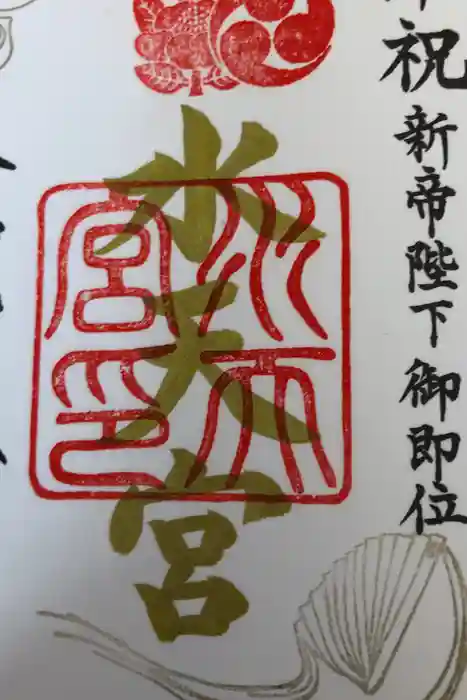 祝 新帝陛下御即位
水天宮
水天
宮印